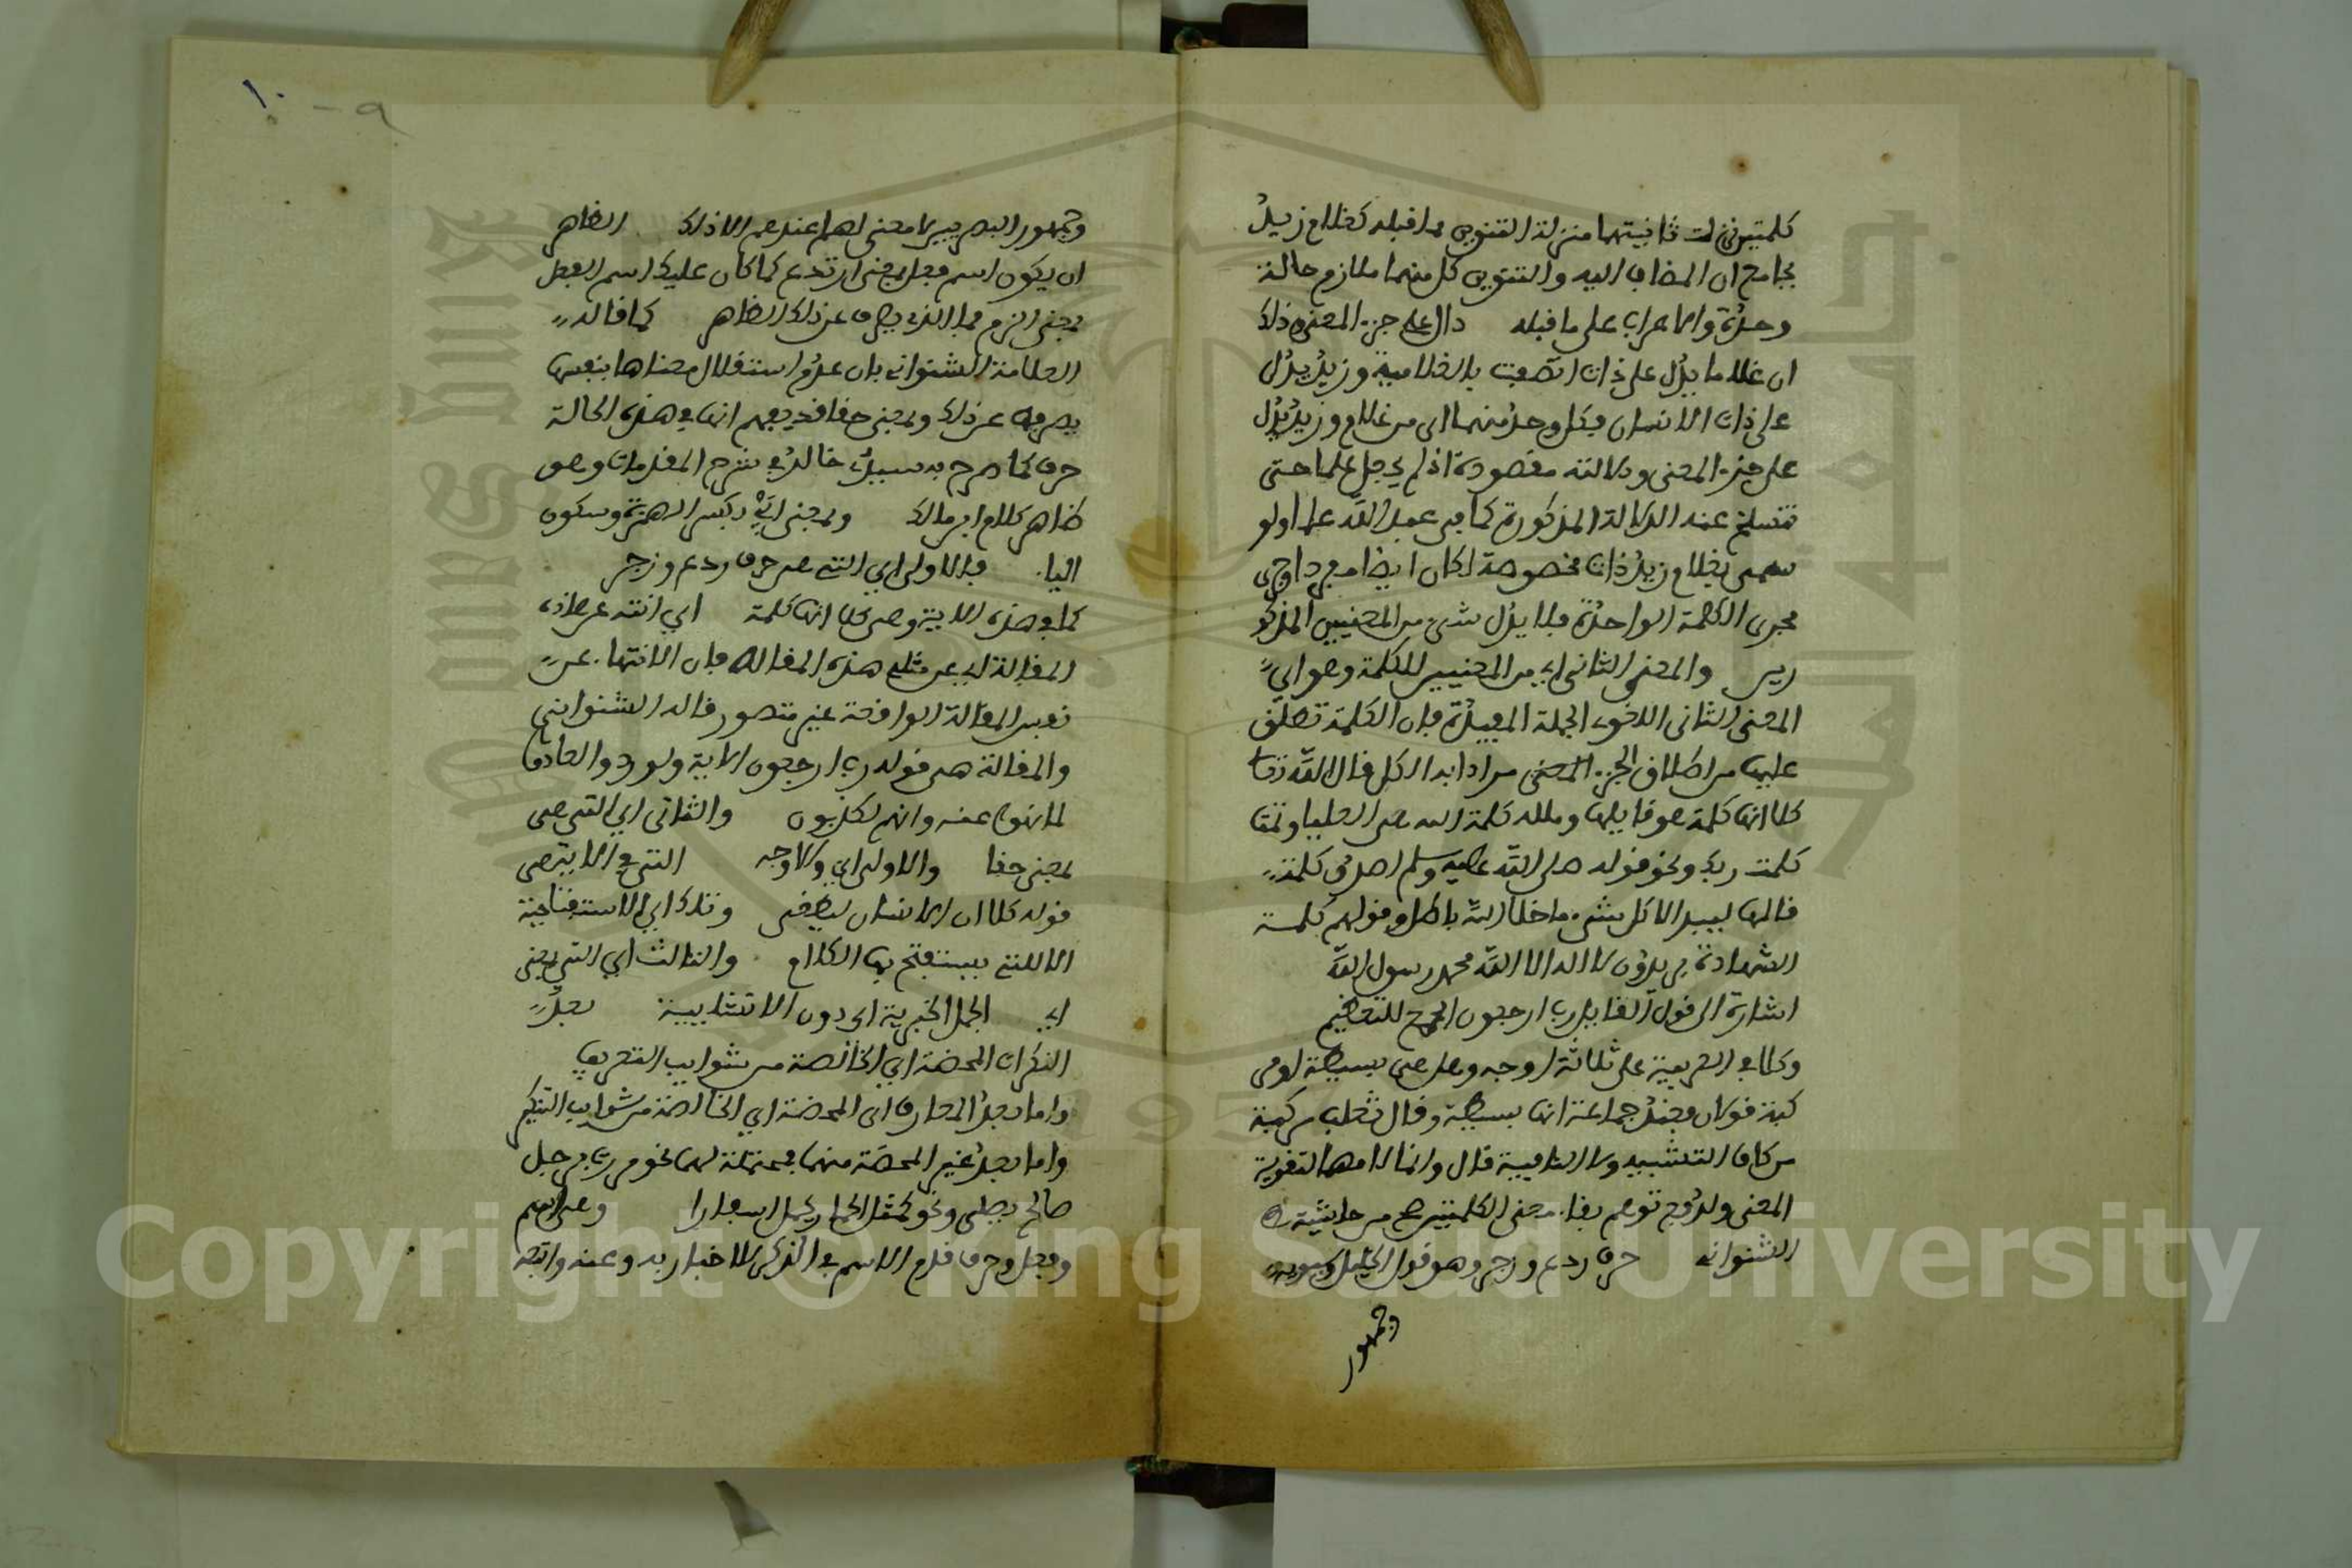 كلمتين نزلت ثانيتهما منزلة التنوين مما قبله كغلام زيد
بجامع ان المضاف اليه والتنوين كل منهما ملازم حالة
وحدة والاعراب على ما قبله دال على جزء المعنى وذلك
ان غلاما يدل على ذات اتصفت بالغلامية وزيد يدل
على ذات الانسان فكل وحد منهما اي من غلام وزيد يدل
على جزء المعنى ودلالته مقصودة اذ لم يجعل علما حتى
تنسلخ عنه الدلالة المذكورة كما في عبد الله علما ولو
سمي بغلام زيد ذات مخصوصة لكان ايضا مفردا وجرى
مجرى الكلمة الواحدة فلا يدل شيء من المعنيين المذكو
رين والمعنى الثاني اي من المعنيين للكلمة وهو اي
المعنى الثاني اللغوي الجملة المفيدة فان الكلمة تطلق
عليها من اطلاق الجزء المعنى مرادا به الكل قال الله تعا
كلا انها كلمة هو قايلها وملله كلمة الله هي العليا وتمت
كلمت ربك ونحو قوله صلى الله عليه وسلم اصدق كلمة
قالها لبيد الا كل شيء ما خلا الله باطل وقولهم كلمة
الشهادة يريدون لا اله الا الله محمد رسول الله
اشارة الى قول القايل رب ارجعون الجمع للتعظيم
وكلا في العربية على ثلاثة اوجه وهل هي بسيطة او مر
كبة قولان فعند جماعة انها بسيطة وقال ثعلب مركبة
من كاف التشبيه ولا النافية قال وانما لامها لتقوية
المعنى ولدفع توهم بقاء معنى الكلمتين صح من حاشية
الشنواني حرف ردع وزجر وهو قول الخليل وسيبويه
وجمهور
١٠ - ٩
وجمهور البصريين لا معنى لهما عندهم الا ذلك الظاهر
ان يكون اسم فعل بمعنى ارتدع كما كان عليك اسم الفعل
بمعنى الزم فما الذي يصرف عن ذلك الظاهر كما قاله
العلامة الشنواني بان عدم استقلال معناها بنفسها
يصرفها عن ذلك وبمعنى حقا قد يفهم انها في هذه الحالة
حرف كما صرح به سيبد خالد في شرح المقدمات وهو
ظاهر كلام ابن مالك وبمعنى اي بكسر الهمزة وسكون
اليا. فالاولى اي التي هي حرف ردع وزجر
كما في هذه الاية وهي كلا انها كلمة اي انته عن هاذه
المقالة اي عن مثل هذه المقالة فان الانتهاء عن
نفس المقالة الواقعة غير متصور قاله الشنواني
والمقالة هي قوله رب ارجعون الاية ولو ردوا لعادوا
لما نهوا عنه وانهم لكذبون والثاني اي التي هي
بمعنى حقا والاولى اي ولاوجه التي في الاية هي
قوله كلا ان الانسان ليطغى وتلك اي الاستفتاحية
الا التي يستفتح بها الكلام والثالث اي التي بمعنى
اي الجمل الخبرية اي دون الانشاييية بعد
النكرات المحضة اي الخالصة من شوايب التعريف
واما بعد المعارف اي المحضة اي الخالصة من شوايب التنكير
واما بعد غير المحضة منهما فمحتملة لهما نحو مررت برجل
صالح يصلي ونحو كمثل الحمار يحمل اسفارا وهي اسم
وفعل وحرف قدم الاسم في الذكر للاخبار به وعنه واتبعه